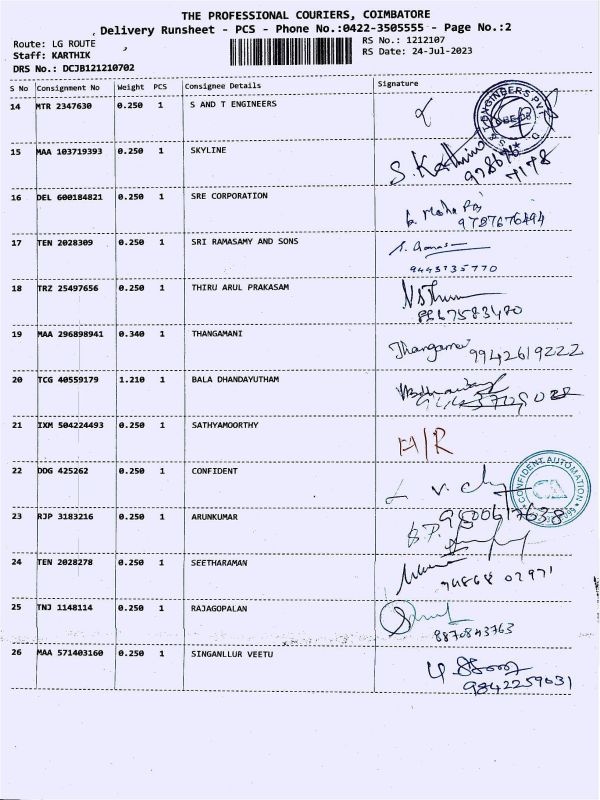 THE PROFESSIONAL COURIERS, COIMBATORE
Delivery Runsheet - PCS - Phone No.:0422-3505555 - Page No.:2
Route: LG ROUTE
RS No.: 1212107
Staff: KARTHIK
RS Date: 24-Jul-2023
DRS No.: DCJB121210702
S No Consignment No Weight PCS Consignee Details Signature
14 MTR 2347630 0.250 1 S AND T ENGINEERS
15 MAA 103719393 0.250 1 SKYLINE
16 DEL 600184821 0.250 1 SRE CORPORATION
9787676494
17 TEN 2028309 0.250 1 SRI RAMASAMY AND SONS
9443735770
18 TRZ 25497656 0.250 1 THIRU ARUL PRAKASAM
8867583480
19 MAA 296898941 0.340 1 THANGAMANI Thangamai 9942619222
20 TCG 40559179 1.210 1 BALA DHANDAYUTHAM
21 IXM 504224493 0.250 1 SATHYAMOORTHY
22 DDG 425262 0.250 1 CONFIDENT
CONFIDENT AUTOMATION
23 RJP 3183216 0.250 1 ARUNKUMAR 9500617638
24 TEN 2028278 0.250 1 SEETHARAMAN
74868 02971
25 TNJ 1148114 0.250 1 RAJAGOPALAN
8870843763
26 MAA 571403160 0.250 1 SINGANLLUR VEETU
9842259031